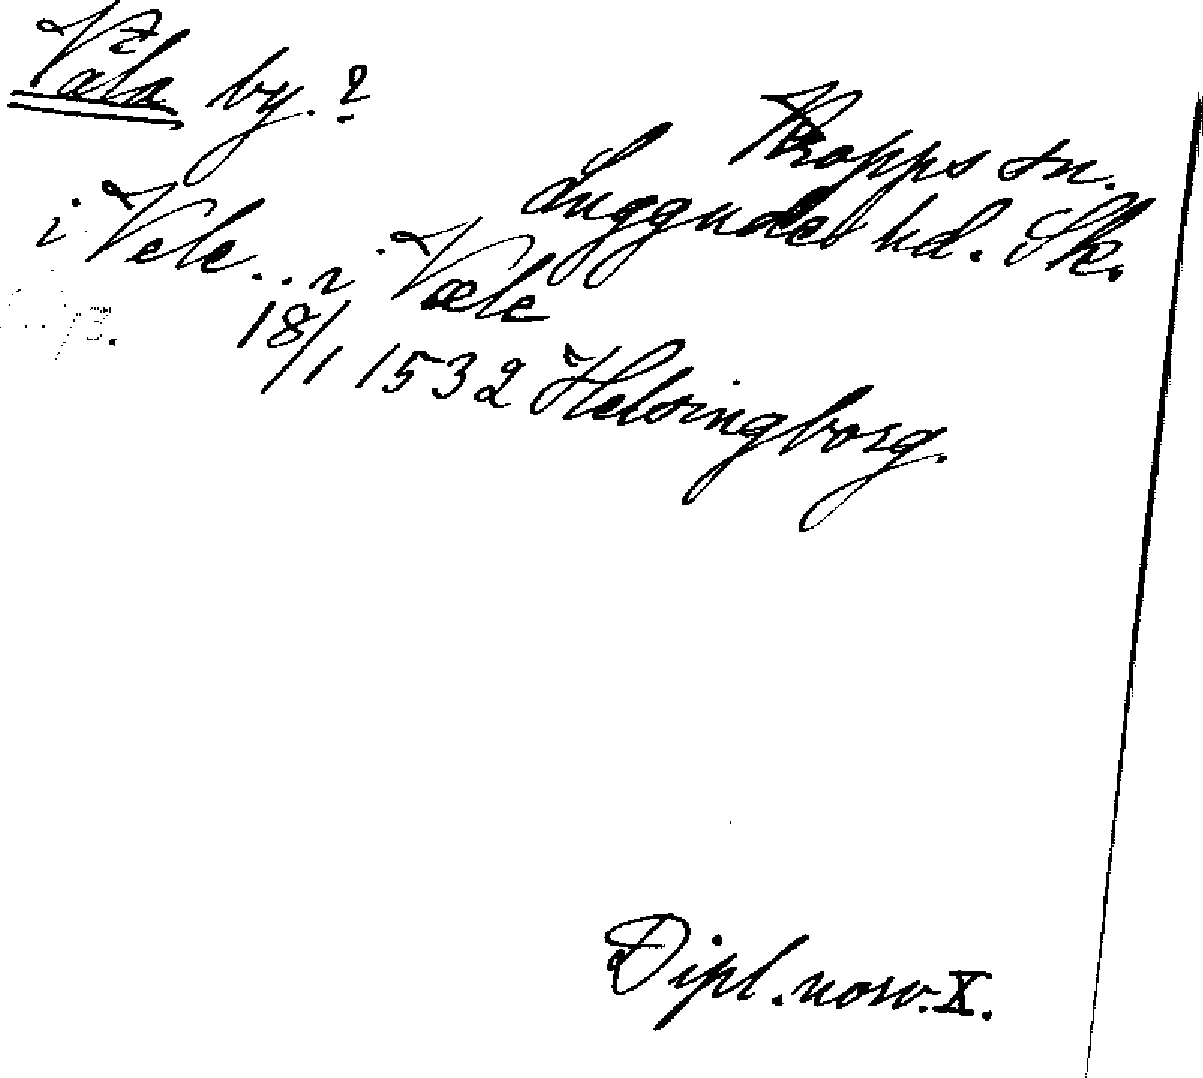 Væla by.?
Kropps sn.
Luggudes hd. Sk.
i Vele... i Væle
18/1 1532 Helsingborg.
Dipl. norv. X.